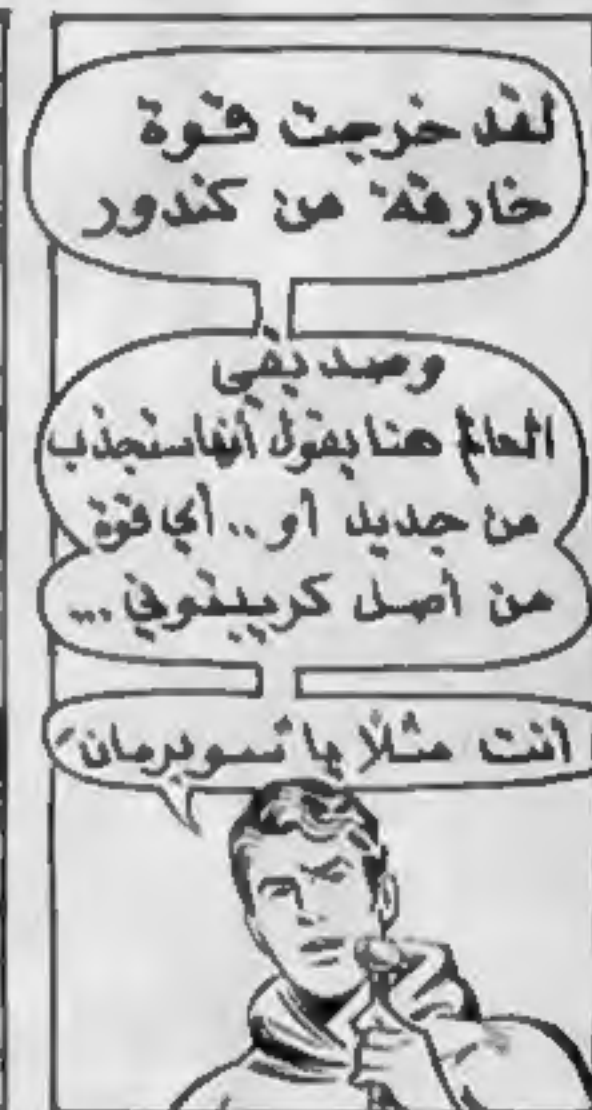 لقد خرجت قوة
خارقة من كندور
وصديقي
العالم هنا يقول أنها ستجذب
من جديد أو.. أي قوة
من أصل كريبتوني ...
أنت مثلا يا "سوبرمان"